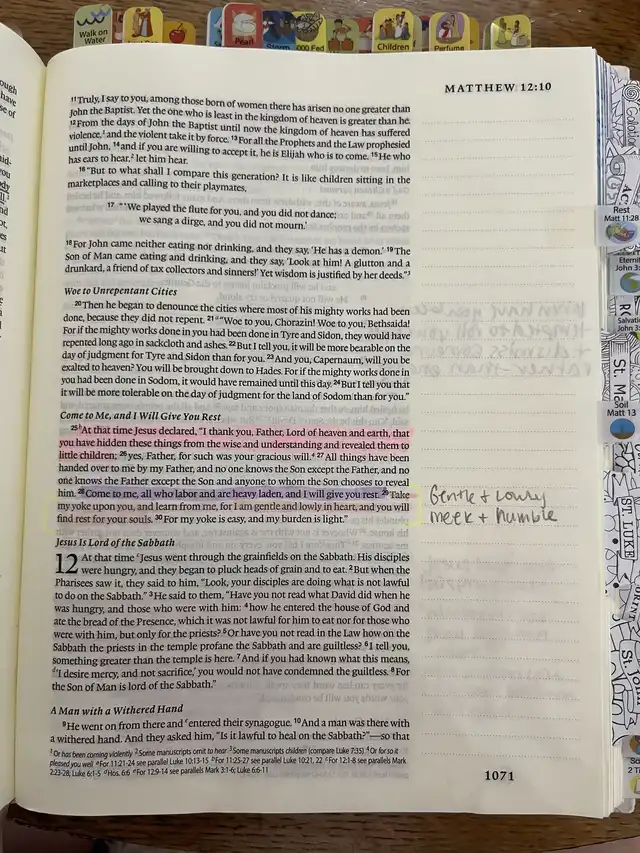 Walk on
Water
Pearl
000 Fed
Children
Perfume
MATTHEW 12:10
11Truly, I say to you, among those born of women there has arisen no one greater than
John the Baptist. Yet the one who is least in the kingdom of heaven is greater than he.
12From the days of John the Baptist until now the kingdom of heaven has suffered
violence,1 and the violent take it by force. 13For all the Prophets and the Law prophesied
until John, 14and if you are willing to accept it, he is Elijah who is to come. 15He who
has ears to hear,2 let him hear.
16"But to what shall I compare this generation? It is like children sitting in the
marketplaces and calling to their playmates,
17 "'We played the flute for you, and you did not dance;
we sang a dirge, and you did not mourn.'
18For John came neither eating nor drinking, and they say, 'He has a demon.' 19The
Son of Man came eating and drinking, and they say, 'Look at him! A glutton and a
drunkard, a friend of tax collectors and sinners!' Yet wisdom is justified by her deeds."3
Woe to Unrepentant Cities
20Then he began to denounce the cities where most of his mighty works had been
done, because they did not repent. 21a"Woe to you, Chorazin! Woe to you, Bethsaida!
For if the mighty works done in you had been done in Tyre and Sidon, they would have
repented long ago in sackcloth and ashes. 22But I tell you, it will be more bearable on the
day of judgment for Tyre and Sidon than for you. 23And you, Capernaum, will you be
exalted to heaven? You will be brought down to Hades. For if the mighty works done in
you had been done in Sodom, it would have remained until this day. 24But I tell you that
it will be more tolerable on the day of judgment for the land of Sodom than for you."
Come to Me, and I Will Give You Rest
25bAt that time Jesus declared, "I thank you, Father, Lord of heaven and earth, that
you have hidden these things from the wise and understanding and revealed them to
little children; 26yes, Father, for such was your gracious will.4 27All things have been
handed over to me by my Father, and no one knows the Son except the Father, and no
one knows the Father except the Son and anyone to whom the Son chooses to reveal
him. 28Come to me, all who labor and are heavy laden, and I will give you rest. 29Take
my yoke upon you, and learn from me, for I am gentle and lowly in heart, and you will
find rest for your souls. 30For my yoke is easy, and my burden is light."
Gentle + Lowly
meek + humble
Jesus Is Lord of the Sabbath
12 At that time cJesus went through the grainfields on the Sabbath. His disciples
were hungry, and they began to pluck heads of grain and to eat. 2But when the
Pharisees saw it, they said to him, "Look, your disciples are doing what is not lawful
to do on the Sabbath." 3He said to them, "Have you not read what David did when he
was hungry, and those who were with him: 4how he entered the house of God and
ate the bread of the Presence, which it was not lawful for him to eat nor for those who
were with him, but only for the priests? 5Or have you not read in the Law how on the
Sabbath the priests in the temple profane the Sabbath and are guiltless? 6I tell you,
something greater than the temple is here. 7And if you had known what this means,
d'I desire mercy, and not sacrifice,' you would not have condemned the guiltless. 8For
the Son of Man is lord of the Sabbath."
A Man with a Withered Hand
9He went on from there and eentered their synagogue. 10And a man was there
with a withered hand. And they asked him, "Is it lawful to heal on the Sabbath?"—so that
1 Or has been coming violently 2 Some manuscripts omit to hear 3 Some manuscripts children (compare Luke 7:35) 4 Or for so it
pleased you well a For 11:21-24 see parallel Luke 10:13-15 b For 11:25-27 see parallel Luke 10:21, 22 c For 12:1-8 see parallels Mark
2:23-28; Luke 6:1-5 d Hos. 6:6 e For 12:9-14 see parallels Mark 3:1-6; Luke 6:6-11
1071
Rest
Matt 11:28
John 3:
Soil
Matt 13
St. Ma
ST. LUKE